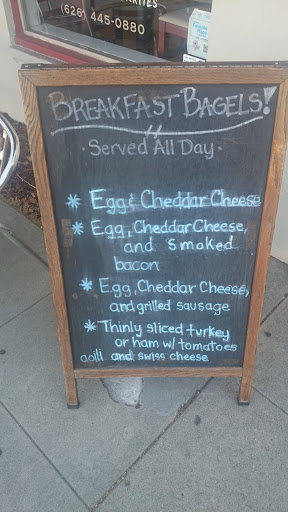 (626) 445-0880
BREAKFAST BAGELS!
· Served All Day ·
* Egg & Cheddar Cheese
* Egg, Cheddar Cheese,
and smoked
bacon
* Egg, Cheddar Cheese,
and grilled sausage
* Thinly sliced turkey
or ham w/ tomatoes
aoili and swiss cheese